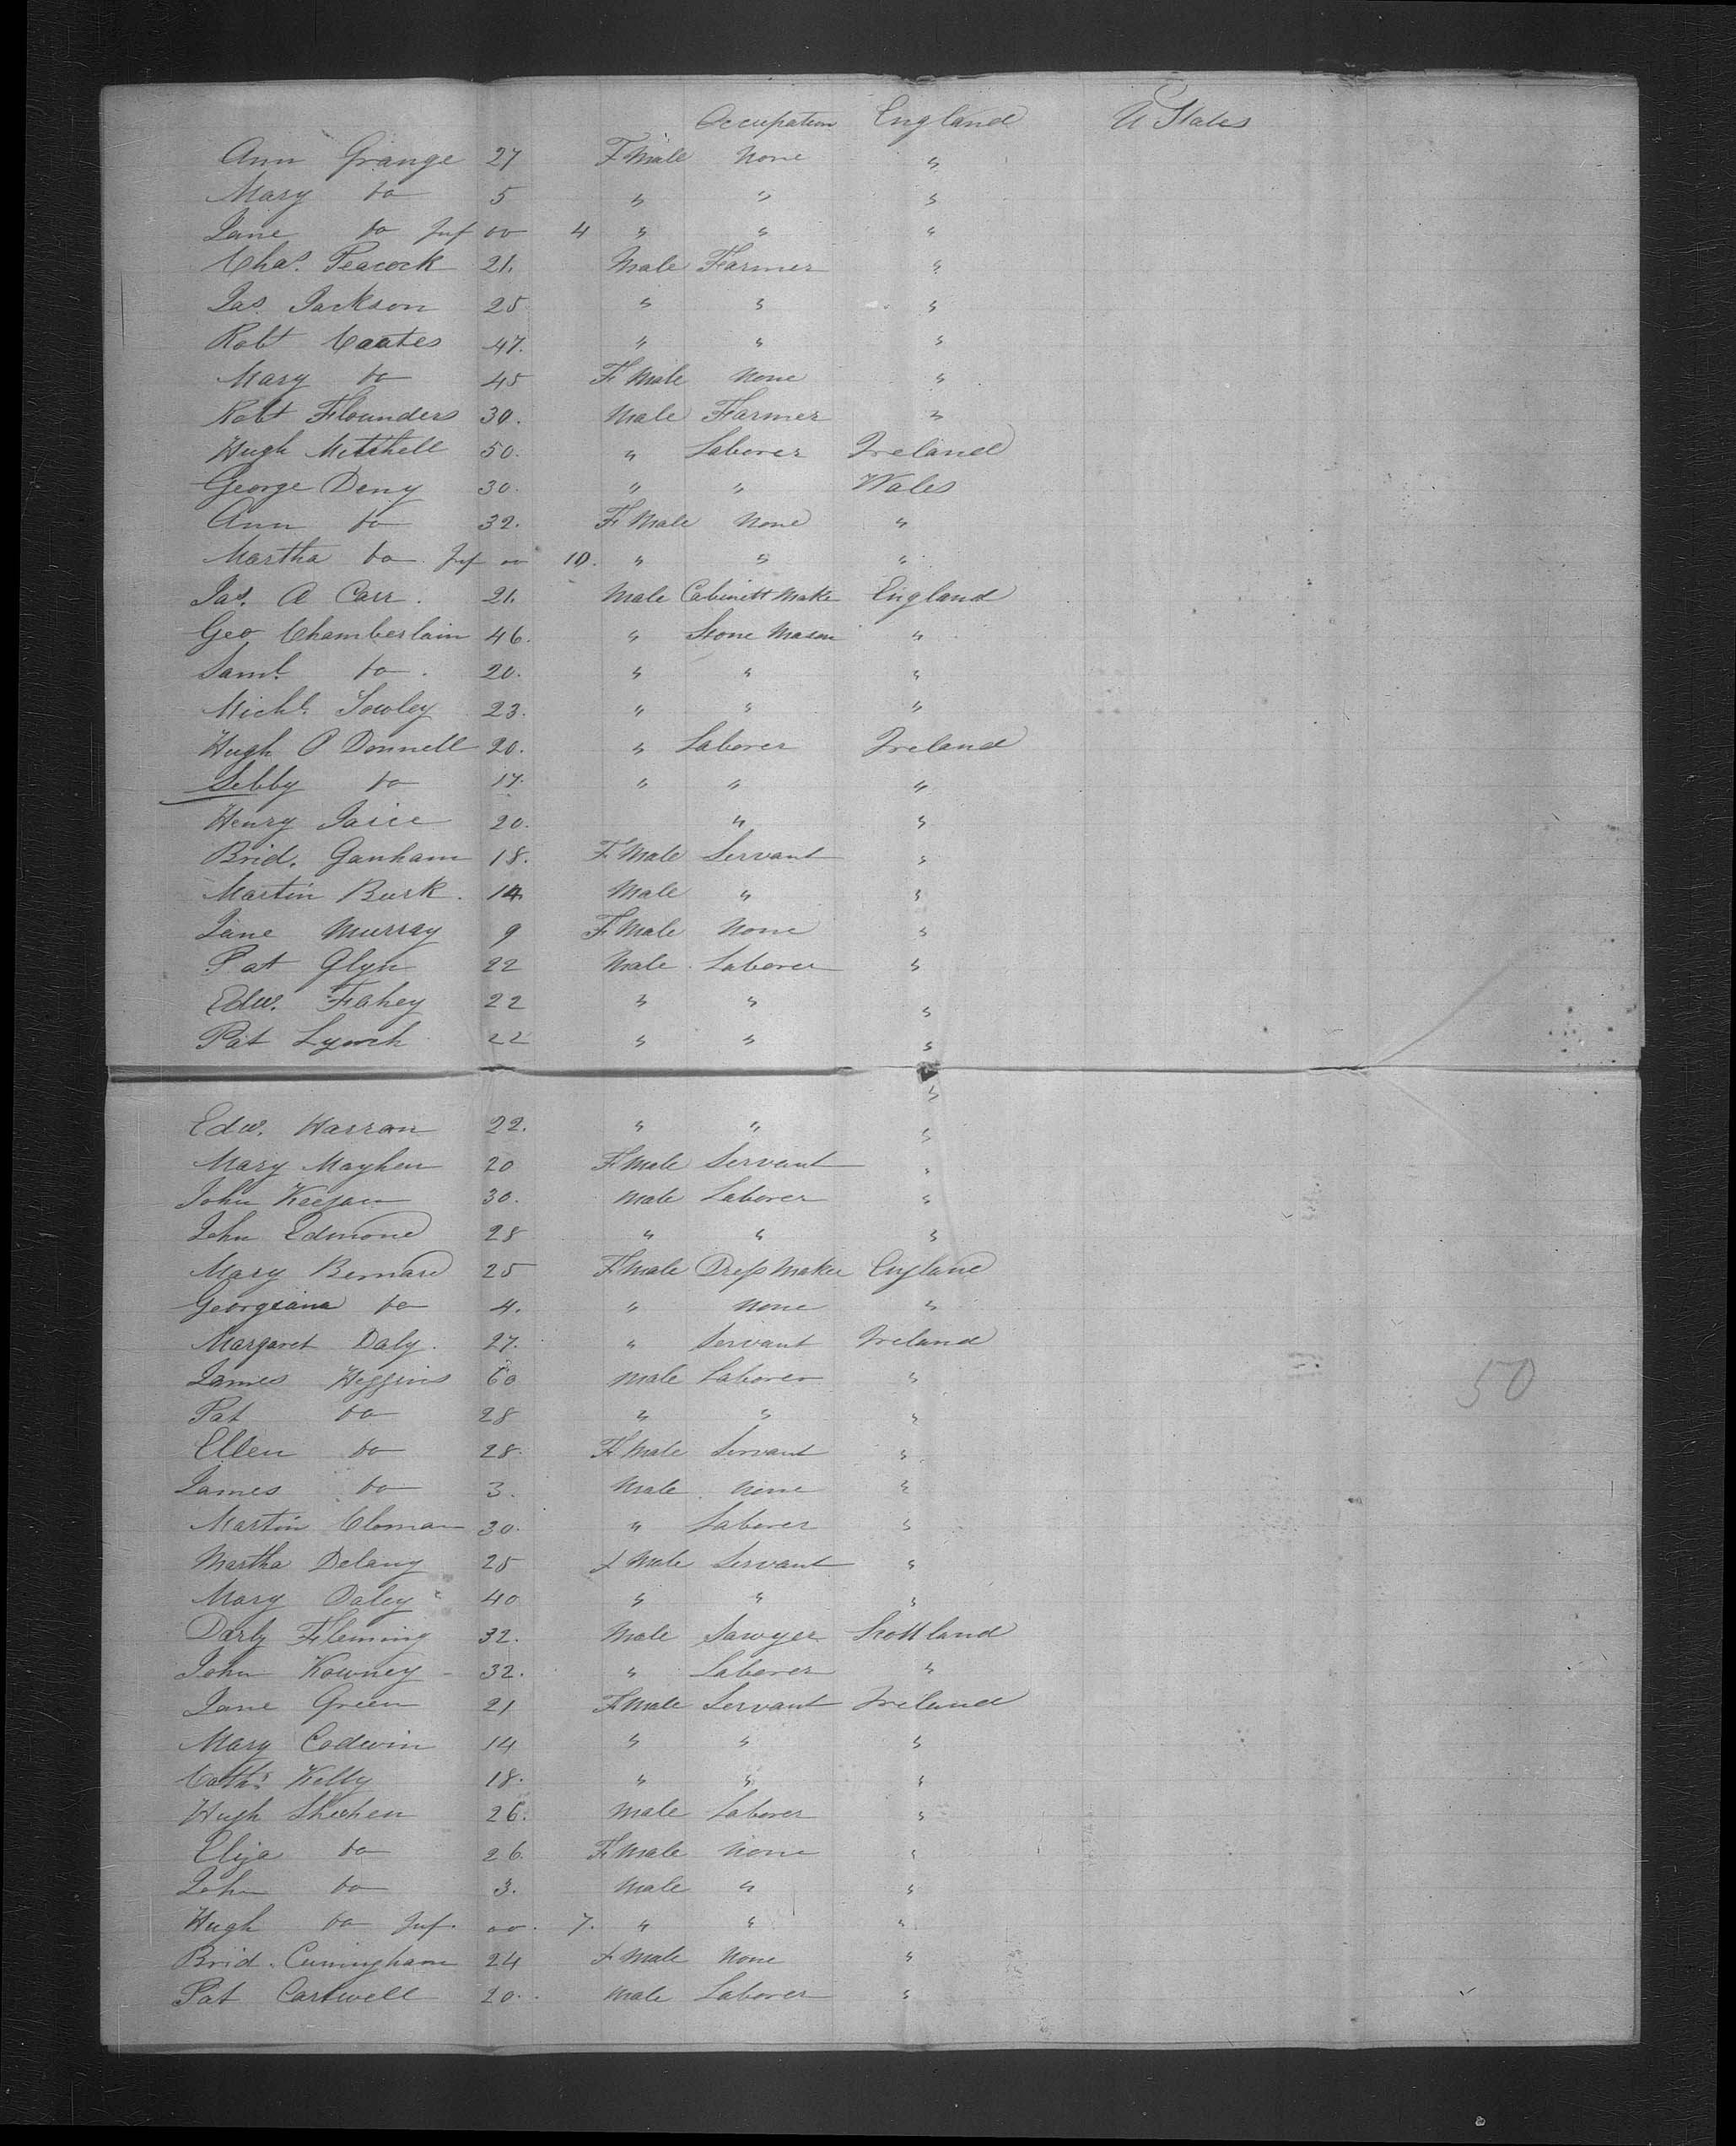 Occupation England U States
Ann Grange 27 F Male None "
Mary do 5 " " "
Jane do Inf 00 4 " " "
Chas. Peacock 21. Male Farmer "
Jas. Jackson 25 " " "
Robt Coates 47. " " "
Mary do 45 F Male None "
Robt Flounders 30. Male Farmer "
Hugh Mitchell 50. " Laborer Ireland
George Deny 30. " " Wales
Ann do 32. F Male None "
Martha do Inf 00 10. " " "
Jas. A Carr. 21. Male Cabinett Make England
Geo Chamberlain 46. " Stone Mason "
Saml. do. 20. " " "
Michl. Sowley 23. " " "
Hugh O Donnell 20. " Laborer Ireland
Sebby do 17. " " "
Henry 20. " "
Brid. Ganham 18. F Male Servant "
Martin Burk. 14 Male " "
Jane Murray 9 F Male None "
Pat Glyn 22 Male Laborer "
Edw. Fahey 22 " " "
Pat Lynch 22 " " "
"
Edw. Harran 22. " " "
Mary Mayhen 20 F Male Servant "
John Keegan 30. Male Laborer "
John Edmond 28 " " "
Mary Bernard 25 F Male Dress Maker England
Georgeana do 4. " None "
Margaret Daly. 27. " Servant Ireland
James Higgins 60 Male Laborer "
Pat do 28 " " "
Ellen do 28. F Male Servant "
James do 3. Male None "
Martin Cloman 30. " Laborer "
Martha Delany 25 F Male Servant "
Mary Daley 40 " " "
Darby Fleming 32. Male Sawyer Scottland
John Kowney 32. " Laborer "
Jane Green 21 F Male Servant Ireland
Mary Codwin 14 " " "
Cath. Kelly 18. " " "
Hugh Shehen 26. Male Laborer "
Eliza do 26. F Male None "
John do 3. Male " "
Hugh do Inf. 00. 7. " " "
Brid. Cuningham 24 F Male None "
Pat Cartwell 20. Male Laborer "
50